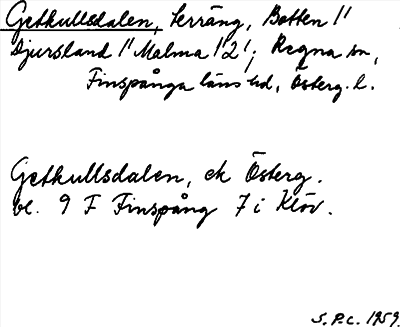 Getkullsdalen, terräng, Botten 1'
Djursland 1' Malma 1'2'; Regna sn,
Finspånga läns hd, Österg. l.
Getkullsdalen, ek Österg.
bl. 9 F Finspång 7 i Klöv.
S.P.C. 1959.